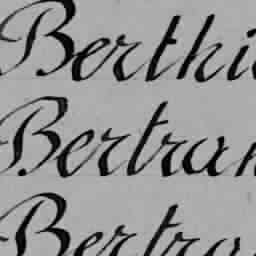 Berthi
Bertran
Bertra